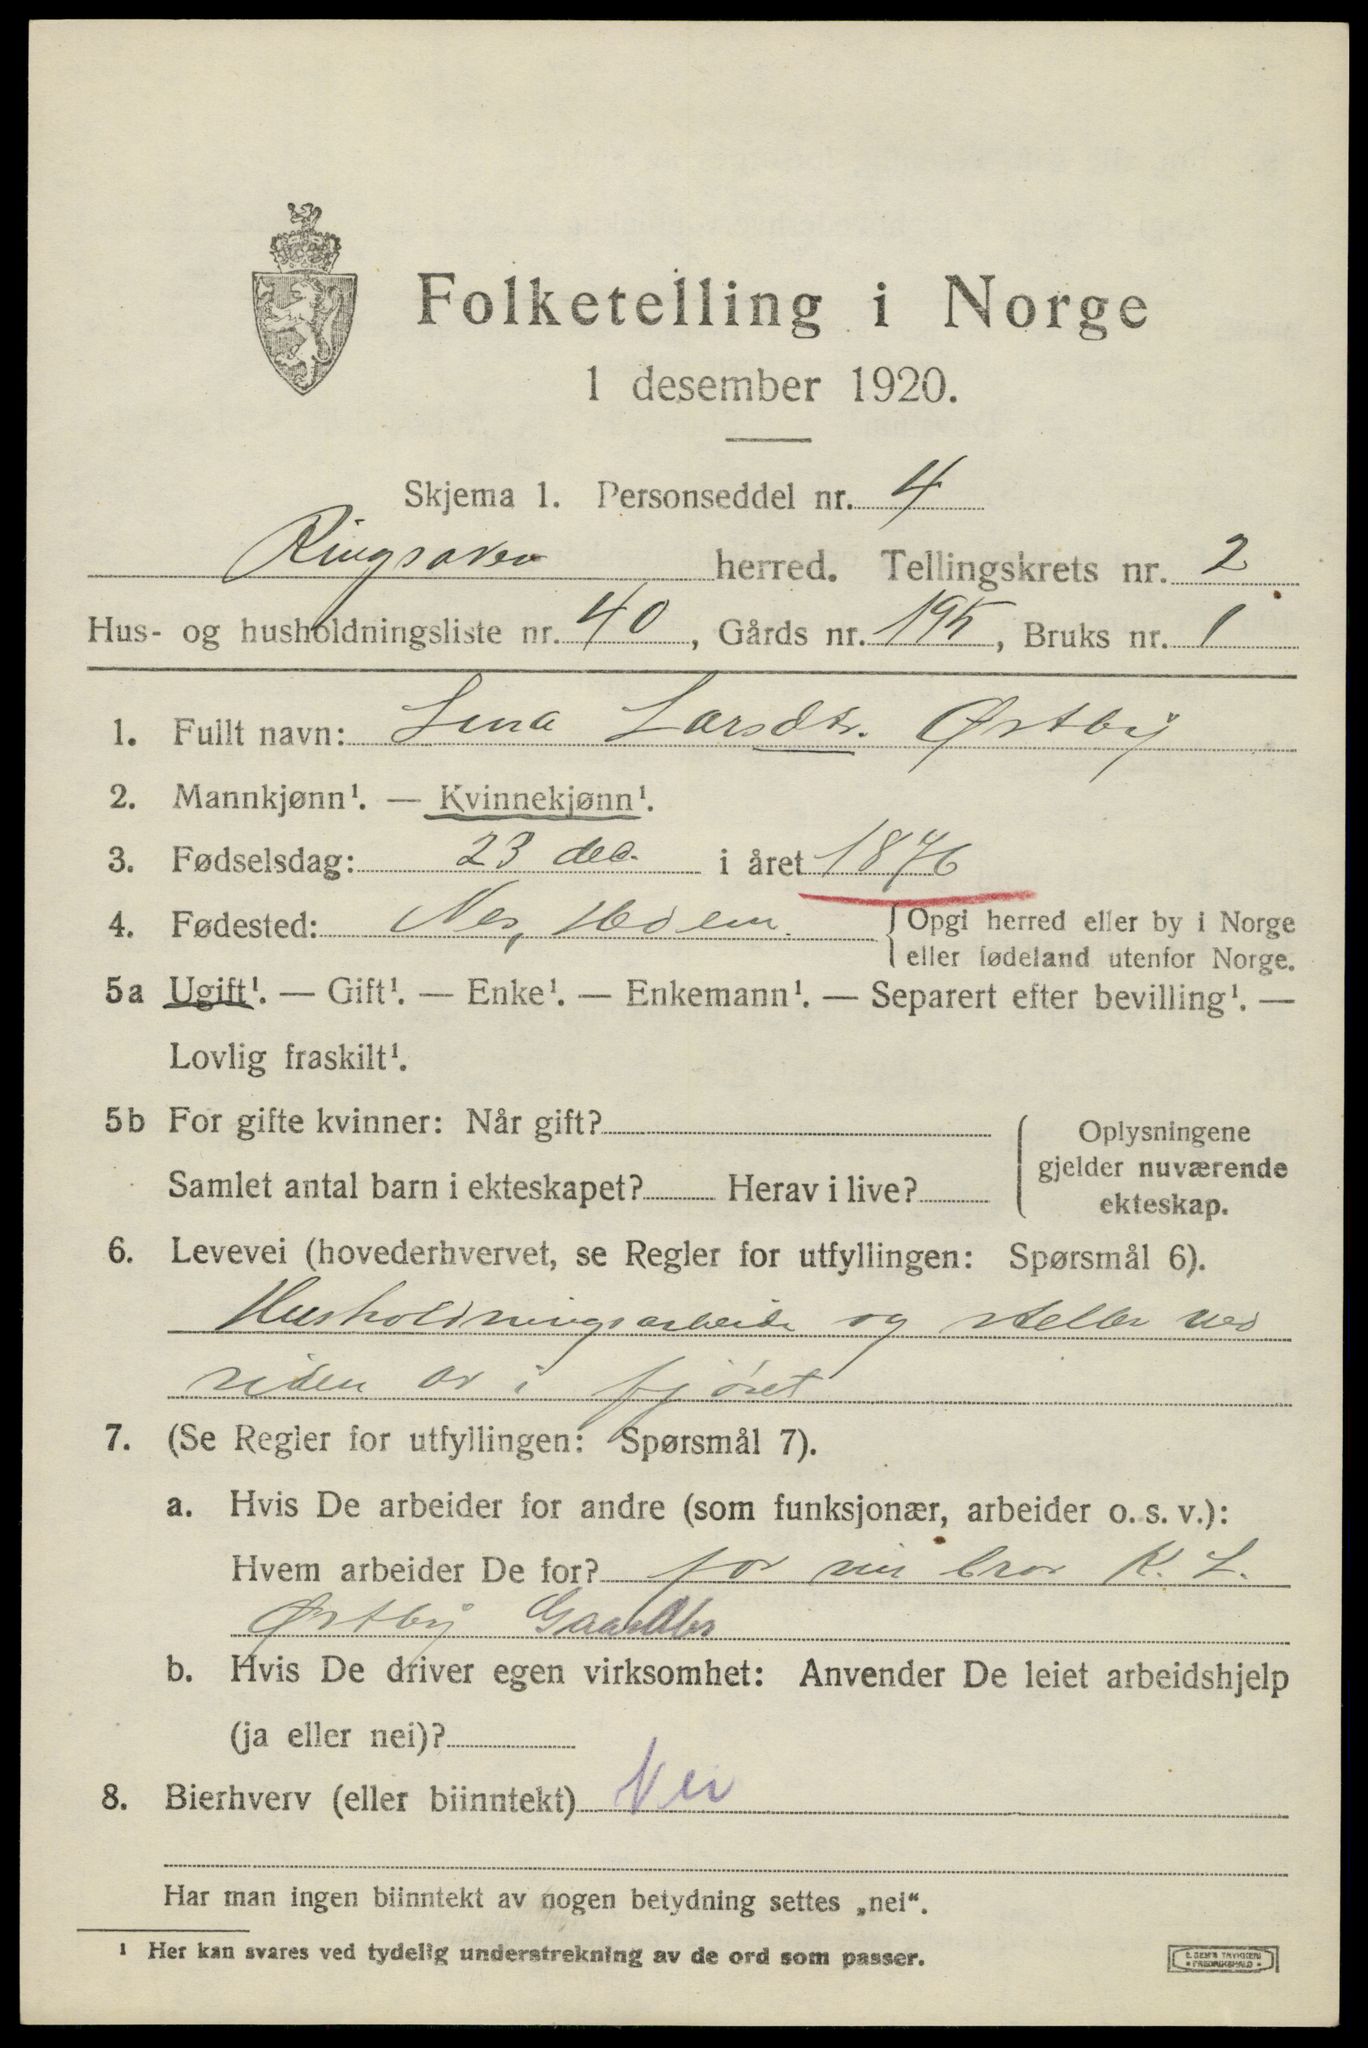 Folketelling i Norge
1 desember 1920.
Skjema 1. Personseddel nr. 4
Ringsaker herred. Tellingskrets nr. 2
Hus- og husholdningsliste nr. 40, Gårds nr. 195, Bruks nr. 1
1. Fullt navn: Lina Larsdtr. Østby
2. Mannkjønn¹. — Kvinnekjønn¹.
3. Fødselsdag: 23 dec. i året 1876
4. Fødested: Nes, Hedem. { Opgi herred eller by i Norge
eller fødeland utenfor Norge.
5a Ugift¹. — Gift¹. — Enke¹. — Enkemann¹. — Separert efter bevilling¹. —
Lovlig fraskilt¹.
5b For gifte kvinner: Når gift?
Samlet antal barn i ekteskapet? Herav i live?
Oplysningene
gjelder nuværende
ekteskap.
6. Levevei (hovederhvervet, se Regler for utfyllingen: Spørsmål 6).
Husholdningsarbeide og steller ved
siden av i fjøset
7. (Se Regler for utfyllingen: Spørsmål 7).
a. Hvis De arbeider for andre (som funksjonær, arbeider o. s. v.):
Hvem arbeider De for? for min bror K. L.
Østby Gaardbr
b. Hvis De driver egen virksomhet: Anvender De leiet arbeidshjelp
(ja eller nei)?
8. Bierhverv (eller biinntekt) Nei
Har man ingen biinntekt av nogen betydning settes „nei“.
¹ Her kan svares ved tydelig understrekning av de ord som passer.
E. SEM'S TRYKKERI
• FREDRIKSHALD •